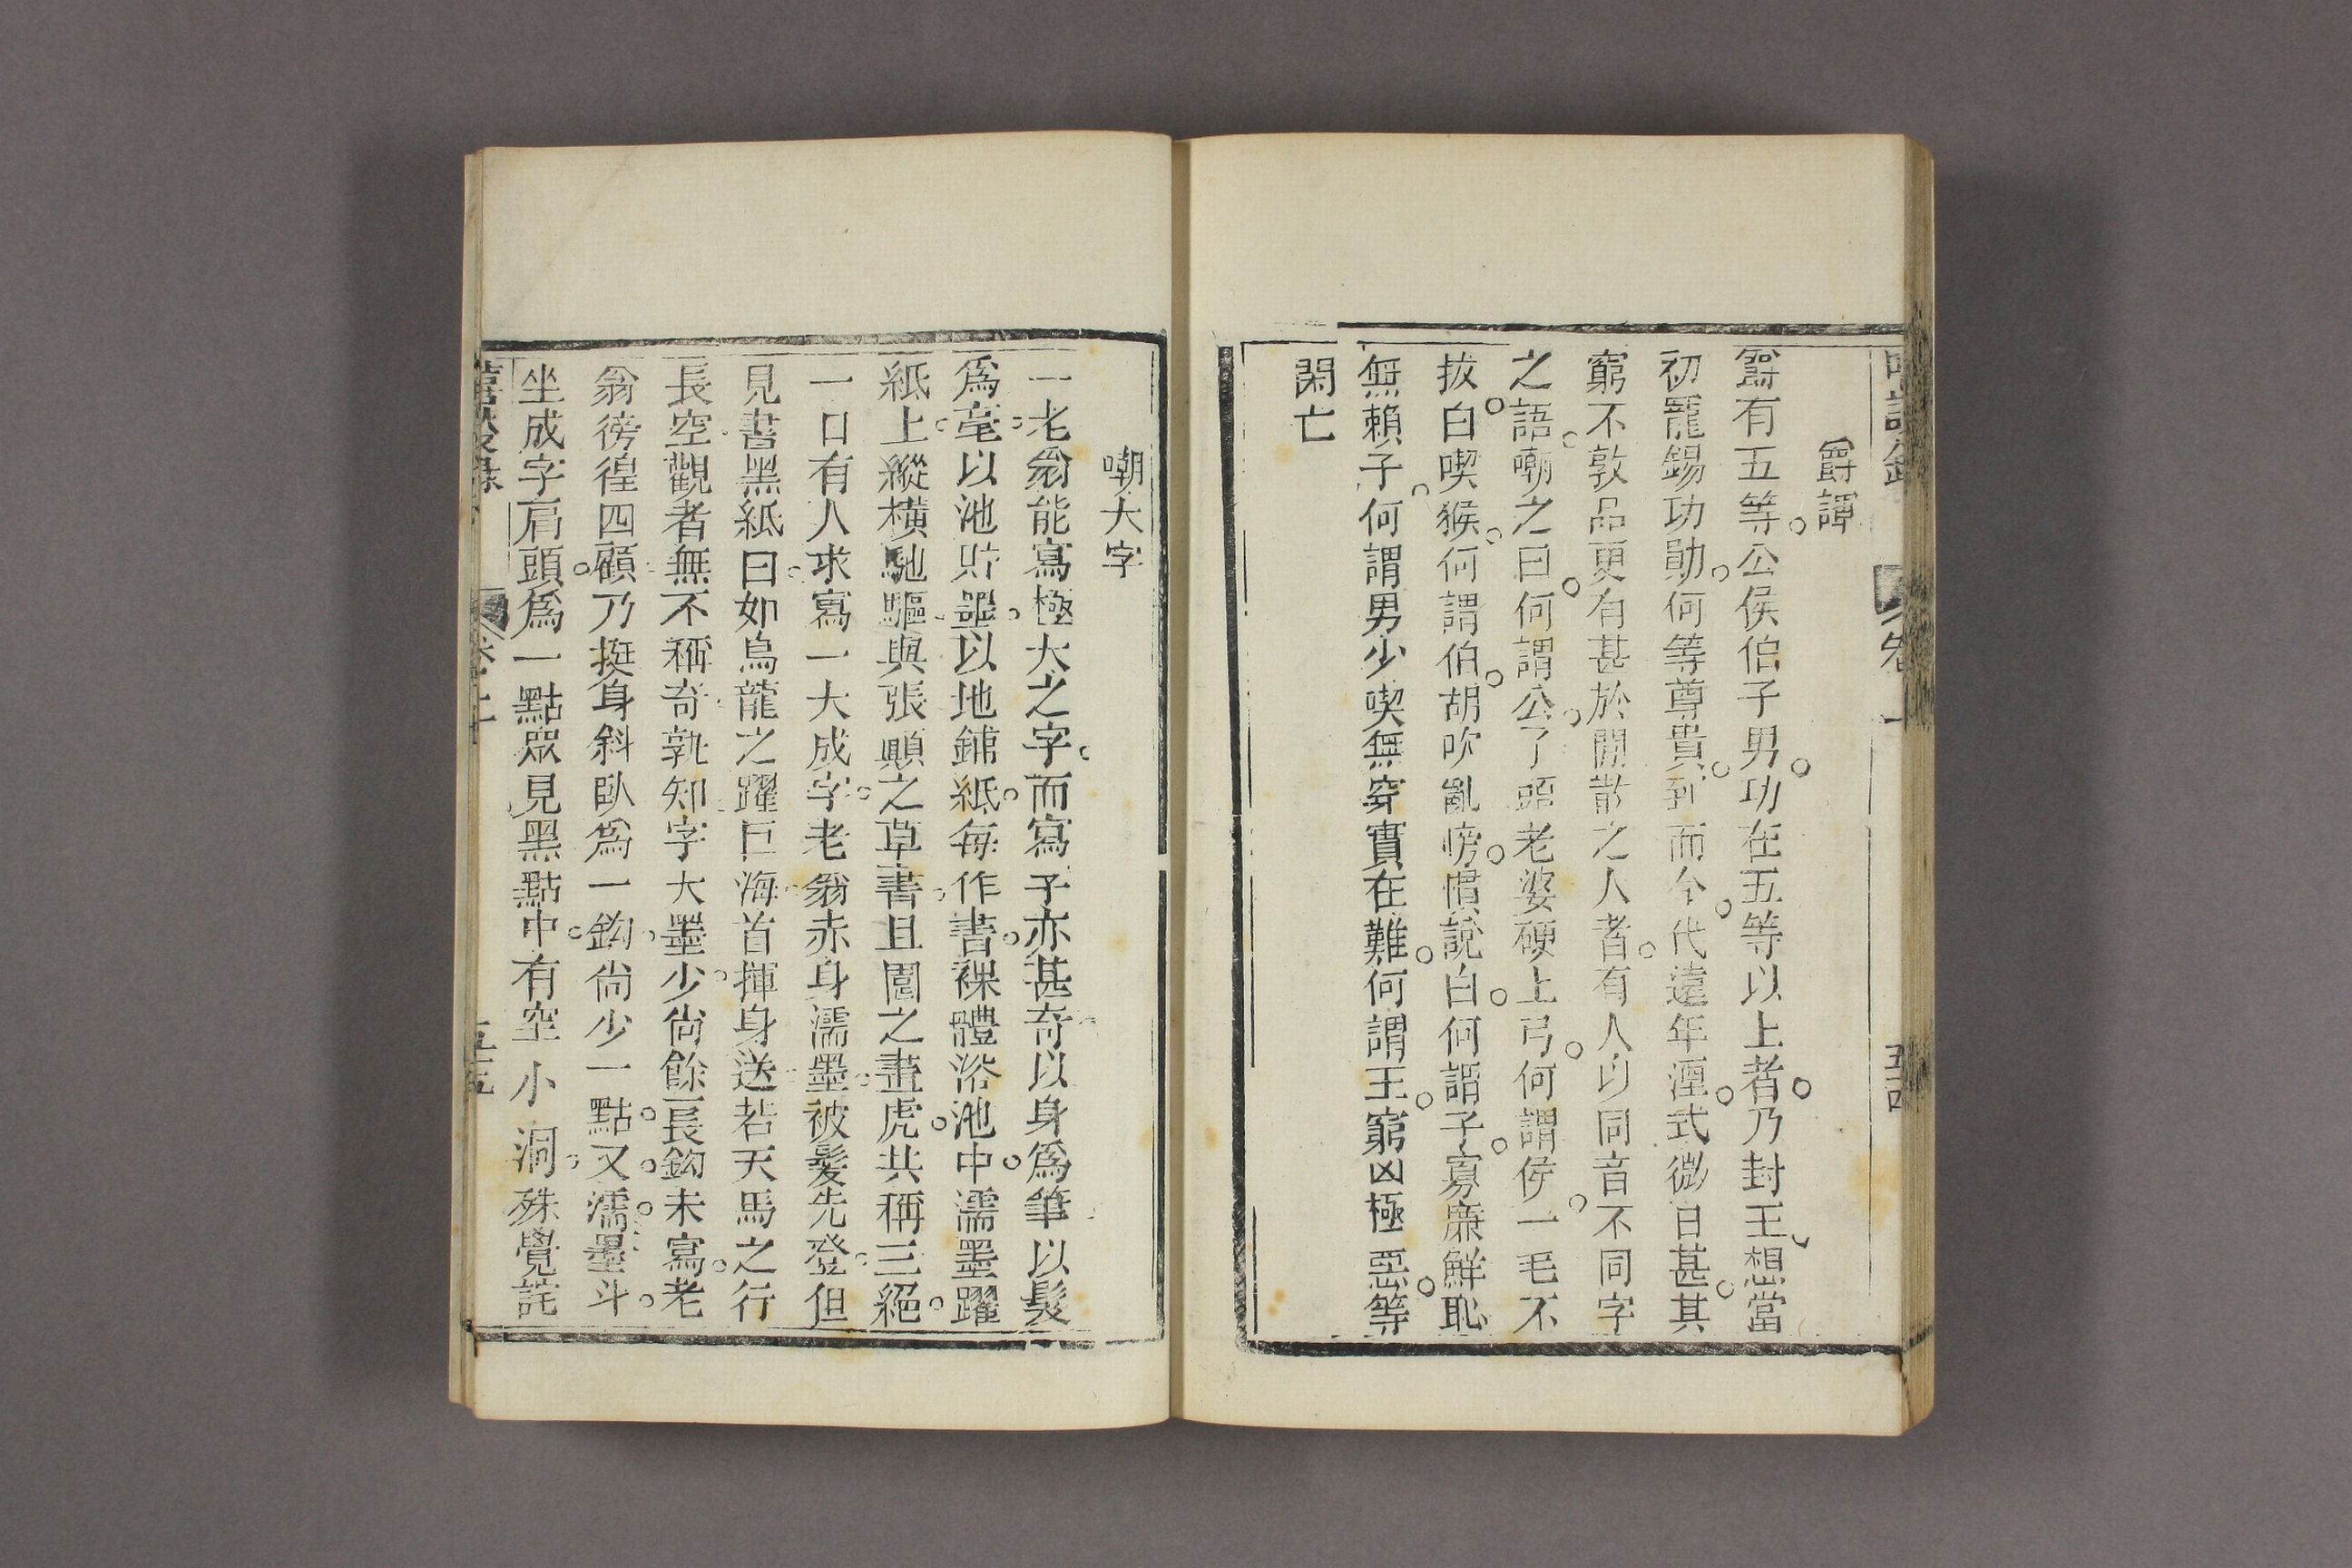 爵譚
爵有五等公侯伯子男功在五等以上者乃封王想當
初寵錫功勛何等尊貴到而今代遠年湮式微日甚其
窮不敦品更有甚於閒散之人者有人以同音不同字
之語嘲之曰何謂公了頭老婆硬上弓何謂侯一毛不
拔白喫猴何謂伯胡吹亂嗙慣說白何謂子寡廉鮮恥
無賴子何謂男少喫無穿實在難何謂王窮凶極惡等
閑亡
嘲大字
一老翁能寫極大之字而寫子亦甚奇以身爲筆以髮
爲毫以池貯墨以地鋪紙每作書裸體浴池中濡墨躍
紙上縱橫馳驅與張顚之草書且園之畫虎共稱三絕
一日有人求寫一大成字老翁赤身濡墨被髮先登但
見書黑紙曰如烏龍之躍巨海首揮身送若天馬之行
長空觀者無不稱奇孰知字大墨少尙餘一長鈎未寫老
翁徬徨四顧乃挺身斜臥爲一鈎尙少一點又濡墨斗
坐成字肩頭爲一點眾見黑點中有空小洞殊覺詫